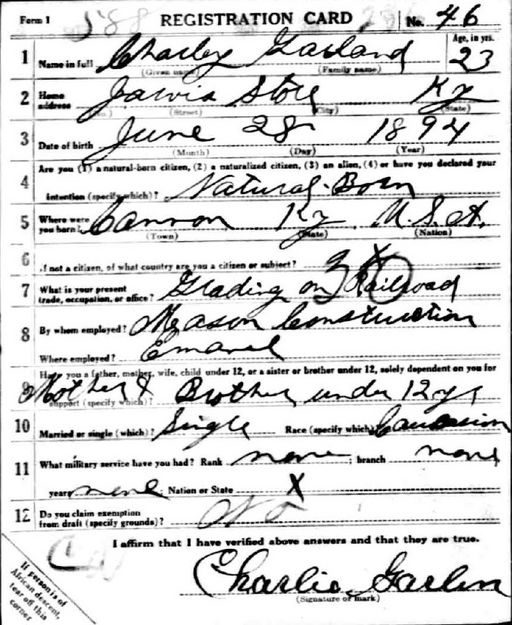 Form 1 588 REGISTRATION CARD No. 46
1 Name in full Charley Garland Age, in yrs. 23
(Given name) (Family name)
2 Home address Jarvis Store Ky
(No.) (Street) (City) (State)
3 Date of birth June 28 1894
(Month) (Day) (Year)
4 Are you (1) a natural-born citizen, (2) a naturalized citizen, (3) an alien, (4) or have you declared your
intention (specify which)? Natural-Born
5 Where were you born? Cannon Ky U.S.A.
(Town) (State) (Nation)
6 If not a citizen, of what country are you a citizen or subject? X
7 What is your present trade, occupation, or office? Grading on Railroad
8 By whom employed? Mason Construction
Where employed? Emanel
9 Have you a father, mother, wife, child under 12, or a sister or brother under 12, solely dependent on you for
support (specify which)? Mother & Brother under 12 yrs
10 Married or single (which)? Single Race (specify which)? Caucasion
11 What military service have you had? Rank none ; branch none
years none ; Nation or State X
12 Do you claim exemption from draft (specify grounds)? No
I affirm that I have verified above answers and that they are true.
Charlie Garlin
(Signature or mark)
If person is of
African descent,
tear off this
corner